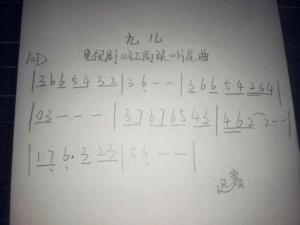 九儿
电视剧《红高粱》片尾曲
1=D
| 3 6 6 5 4 3 2 | 3 6 - - | 3 6 6 5 4 2 3 4 |
| 0 3 - - - | 3 7 6 7 6 5 4 3 | 4 6 2 2 - - |
| 1 7 6 . 3 2 3 | 5 6 - - |